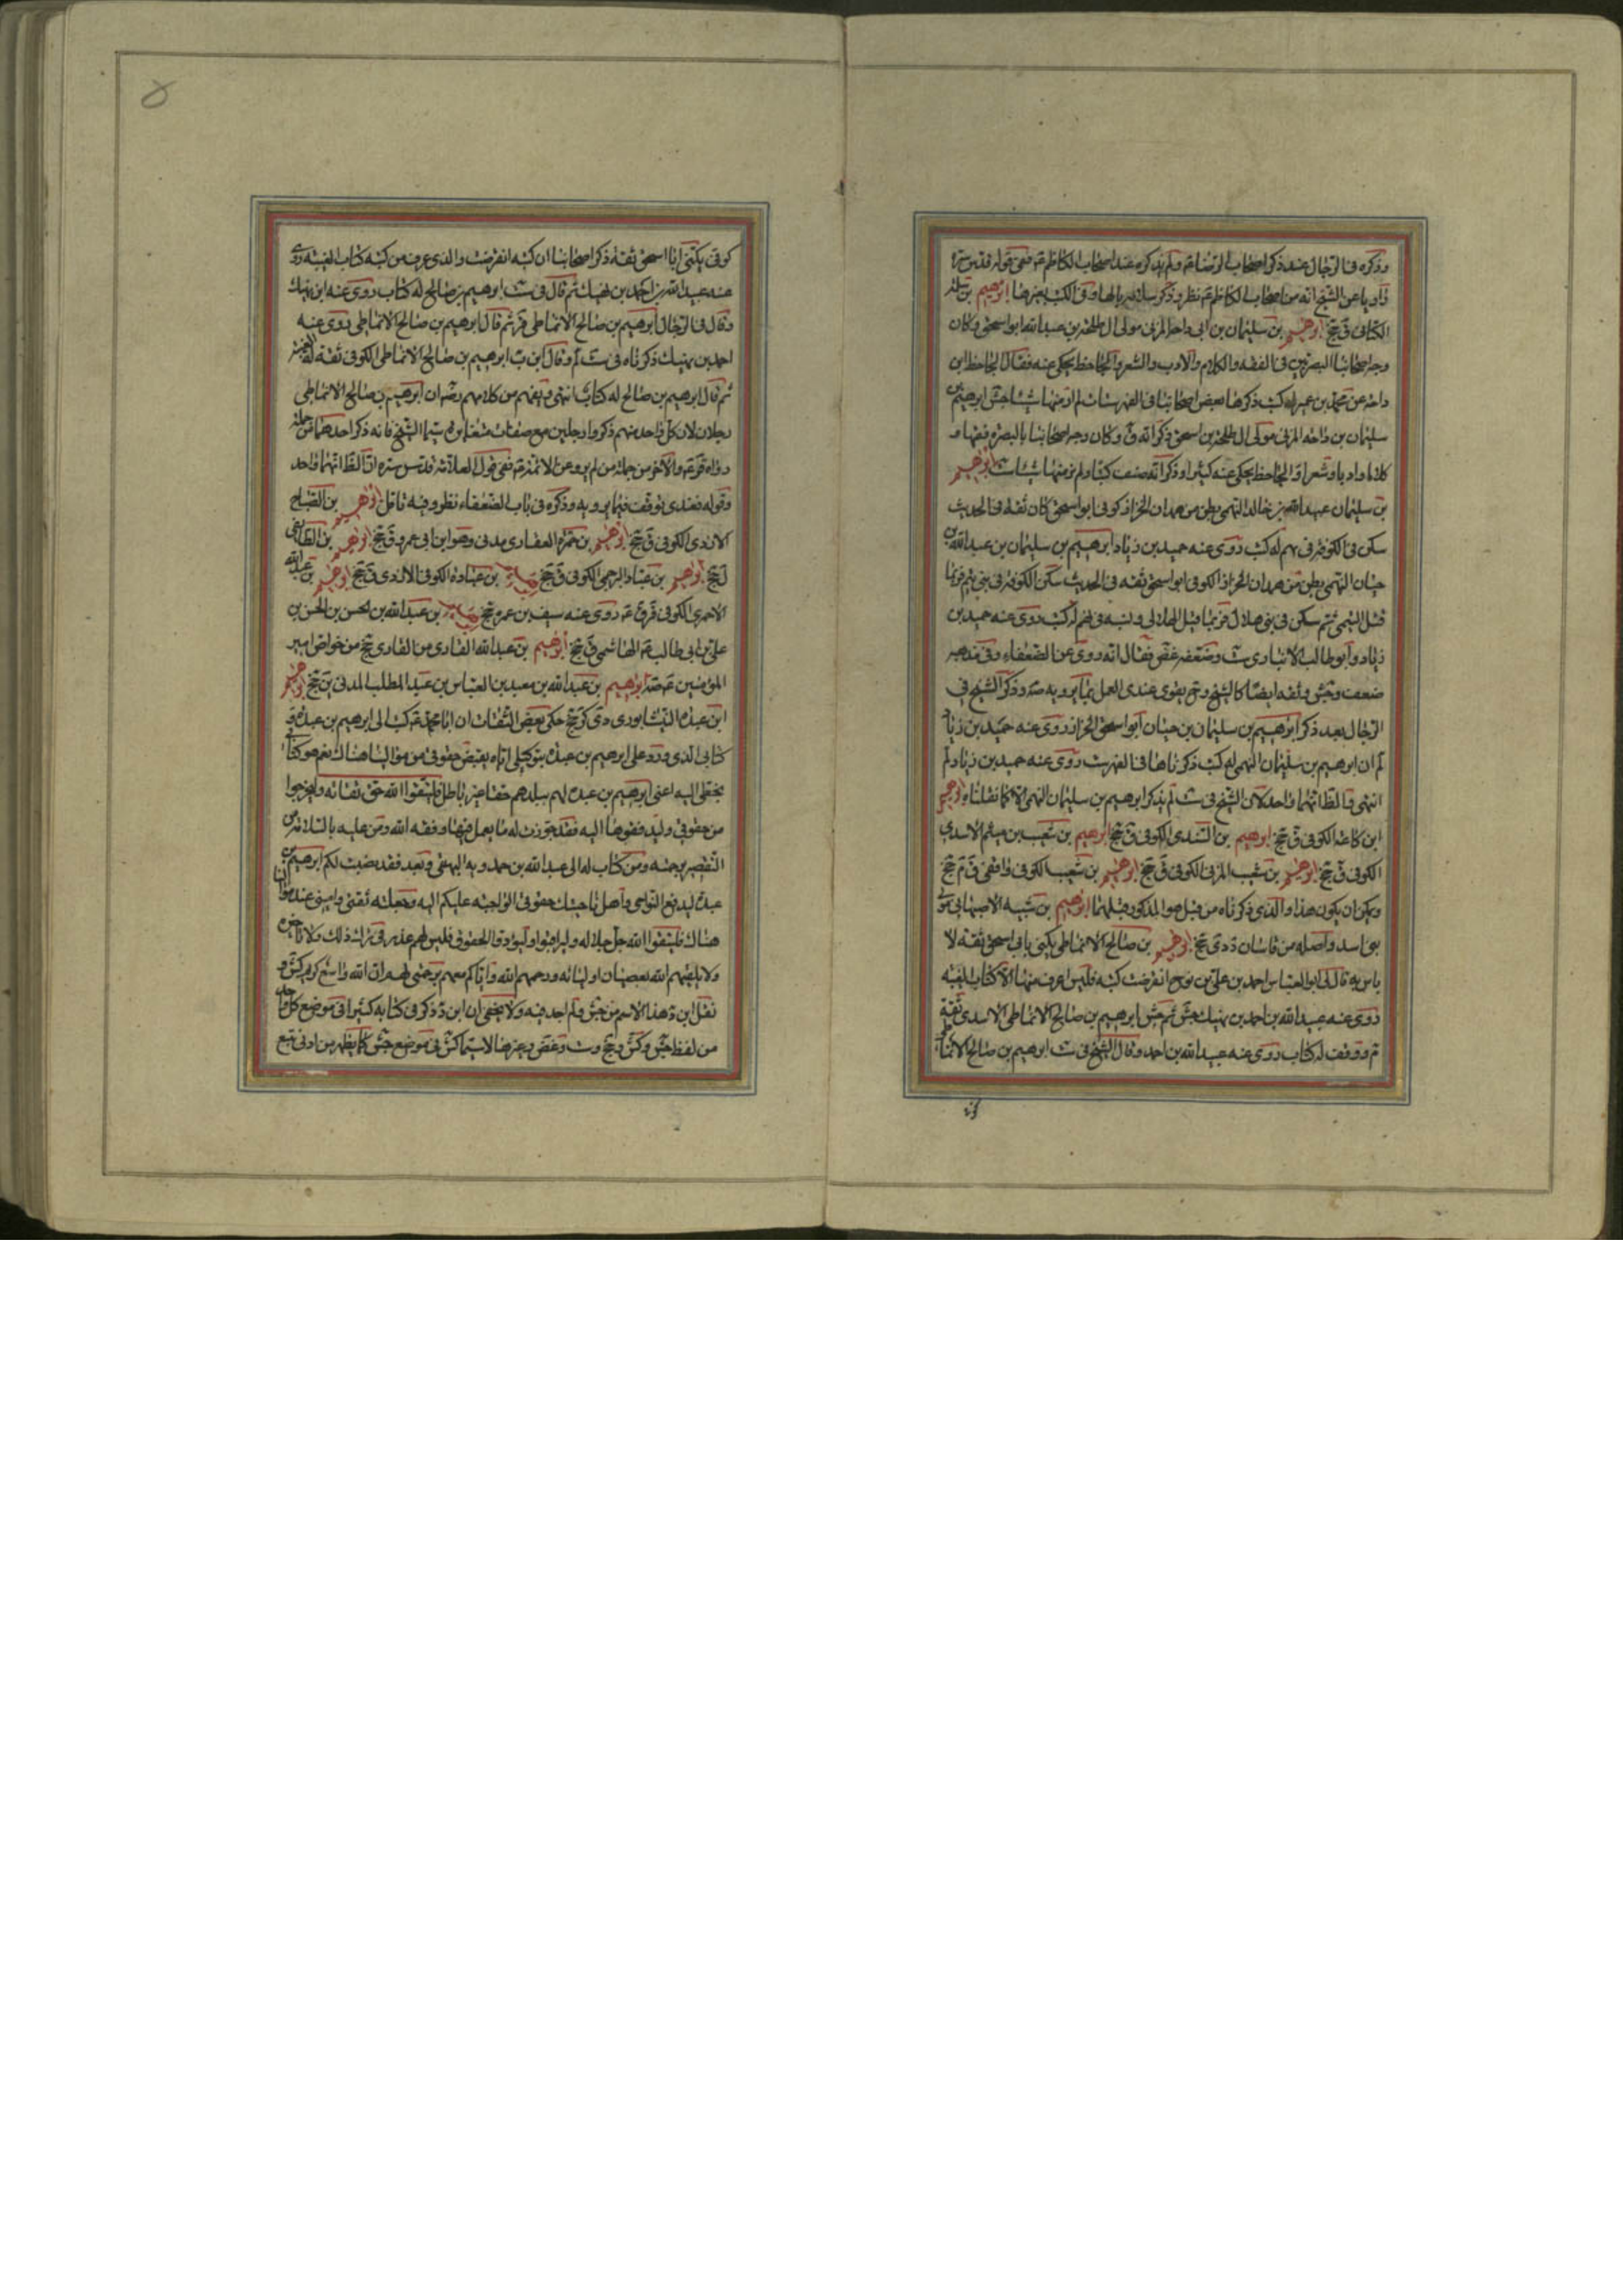 وذكره في الرجال عند ذكر اصحاب الرضا ع ولم يذكره عند اصحاب الكاظم ع ففى قوله قدس سره
راويا عن الشيخ انه من اصحاب الكاظم ع نظر وذكر وفى الكتب ابرهيم بن
الكنانى ق جخ ابرهيم بن سليمان بن ابى داحة المزنى مولى ال طلحة بن عبد الله ابو اسحق وكان
وجه اصحابنا البصريين فى الفقه والكلام والادب والشعر والجاحظ يحكى عنه فقال الجاحظ ابن
داحة عن محمد بن عمير له كتب ذكرها بعض اصحابنا فى الفهرستات لم ار منها شيئا جش ابرهيم بن
سليمان بن داحه المزنى مولى ال طلحة بن اسحق ذكر انه ق وكان وجه اصحابنا بالبصرة فقها و
كلاما وادبا وشعرا والجاحظ يحكى عنه كثيرا وذكر انه صنف كتبا ولم نر منها شيئا ست ابرهيم
بن سليمان عبد الله بن خالد النهمى بطن من همدان الخزاز كوفى ابو اسحق كان ثقة فى الحديث
سكن فى الكوفة فى نهم له كتب روى عنه حميد بن زياد ابرهيم بن سليمان بن عبد الله بن
حيان النهمى بطن من همدان الخزاز الكوفى ابو اسحق ثقه فى الحديث سكن الكوفة فى بنى تيم فربما
قيل التيمى ثم سكن فى بنى هلال فربما قيل الهلالى ونسبه فى نهم له كتب روى عنه حميد بن
زياد وابو طالب الانبارى ست وضعفه غض فقال انه روى عن الضعفاء وفى مذهبه
ضعف وجش وثقه ايضا كالشيخ وح يقوى عندى العمل بما يرويه صه وذكر الشيخ فى
الرجال بعد ذكر ابرهيم بن سليمان بن حيان ابو اسحق الخزاز روى عنه حميد بن زياد
لم ان ابرهيم بن سليمان النهمى له كتب ذكرناها فى الفهرست روى عنه حميد بن زياد لم
انتهى فالظ انهما واحد لان الشيخ فى ست لم يذكر ابرهيم بن سليمان النهمى الا كما نقلناه ابرهيم
ابن كاعة الكوفى ق جخ ابرهيم بن السندى الكوفى ق جخ ابرهيم بن شعيب بن ميثم الاسدى
الكوفى ق جخ ابرهيم بن شعيب المزنى الكوفى ق جخ ابرهيم بن شعيب الكوفى واقفى ق م جخ
ويمكن ان يكون هذا والذى ذكرناه من قبل هو المذكور قبلهما ابرهيم بن شيبه الاصبهانى مولى
بنى اسد واصله من قاسان د دى جخ ابرهيم بن صالح الانماطى يكنى بابى اسحق ثقة لا
باس به قال لى ابو العباس احمد بن على بن نوح انقرضت كتبه فليس اعرف منها الا كتاب الغيبة
روى عنه عبيد الله بن احمد بن نهيك جش ثم جش ابرهيم بن صالح الانماطى الاسدى ثقة
م ووقف له كتاب روى عنه عبيد الله بن احمد وقال الشيخ فى ست ابرهيم بن صالح الانماطى
كوفى يكنى ابا اسحق ثقة ذكر اصحابنا ان كتبه انقرضت والذى عرف من كتبه كتاب الغيبة روى
عنه عبيد الله بن احمد بن نهيك ثم قال فى ست ابرهيم بن صالح له كتاب روى عنه ابن نهيك
وقال فى الرجال ابرهيم بن صالح الانماطى قر ثم قال ابرهيم بن صالح الانماطى روى عنه
احمد بن نهيك ذكرناه فى ست لم وقال ابن ب ابرهيم بن صالح الانماطى الكوفى ثقة له الغيبة
ثم قال ابرهيم بن صالح له كتاب انتهى ويفهم من كلامهم رضه ان ابرهيم بن صالح الانماطى
رجلان لان كل واحد منهم ذكروا رجلين مع صفات متغايرة سيما الشيخ فانه ذكر احدهما من جملة
رواة قر ع والآخر من جملة من لم يرو عن الائمة ع ففى قول العلامة قدس سره ان الظ انهما واحد
وقوله فعندى توقف فيما يرويه وذكره فى باب الضعفاء نظر وفيه تامل ابرهيم بن الصباح
الازدى الكوفى ق جخ ابرهيم بن ضمرة الغفارى مدنى وهو ابن ابى عمرو ق جخ ابرهيم بن الطائفى
ل جخ ابرهيم بن عباد البرجمى الكوفى ق جخ ابرهيم بن عبادة الكوفى الازدى ق جخ ابرهيم بن عبد الله
الاحمرى الكوفى قر ق ع روى عنه سيف بن عميرة جخ ابرهيم بن عبد الله بن الحسن بن الحسن بن
على بن ابى طالب ع الهاشمى ق جخ ابرهيم بن عبد الله القارى من القارى جخ من خواص امير
المؤمنين ع صه ابرهيم بن عبد الله بن معبد بن العباس بن عبد المطلب المدنى ين جخ ابرهيم
ابن عبدة النيشابورى دى كر جخ حكى بعض الثقات ان ابا محمد ع كتب الى ابرهيم بن عبدة و
كتابى الذى ورد على ابرهيم بن عبدة بتوكيلى اياه بقبض حقوقى من موالينا هناك نعم هو كتابى
بخطى اليه اعنى ابرهيم بن عبدة لهم ببلدهم حقا غير باطل فليتقوا الله حق تقاته وليخرجوا
من حقوقى وليدفعوها اليه فقد جوزت له ما يعمل فيها وفقه الله ومن عليه بالسلامة من
التقصير برحمته ومن كتاب له الى عبد الله بن حمدويه البيهقى وبعد فقد بعثت لكم ابرهيم بن
عبدة ليدفع النواحى واهل ناحيتك حقوقى الواجبة عليكم اليه وجعلته ثقتى وامينى عند موالى
هناك فليتقوا الله جل جلاله وليراقبوا وليؤدوا الحقوق فليس لهم عذر فى ترك ذلك ولا تاخيره
ولا يلقيهم الله بعصيان اوليائه ورحمهم الله واياكم معهم برحمتى لهم ان الله واسع كريم كش و
نقل ابن د هذا الاسم من جش ولم اجد فيه ولا يخفى ان ابن د ذكر فى كتابه كثيرا فى موضع كل واحد
من لفظ جش وكش وجخ وست وغض وغيرها لا سيما كش فى موضع جش كما يظهر من ادنى تتبع